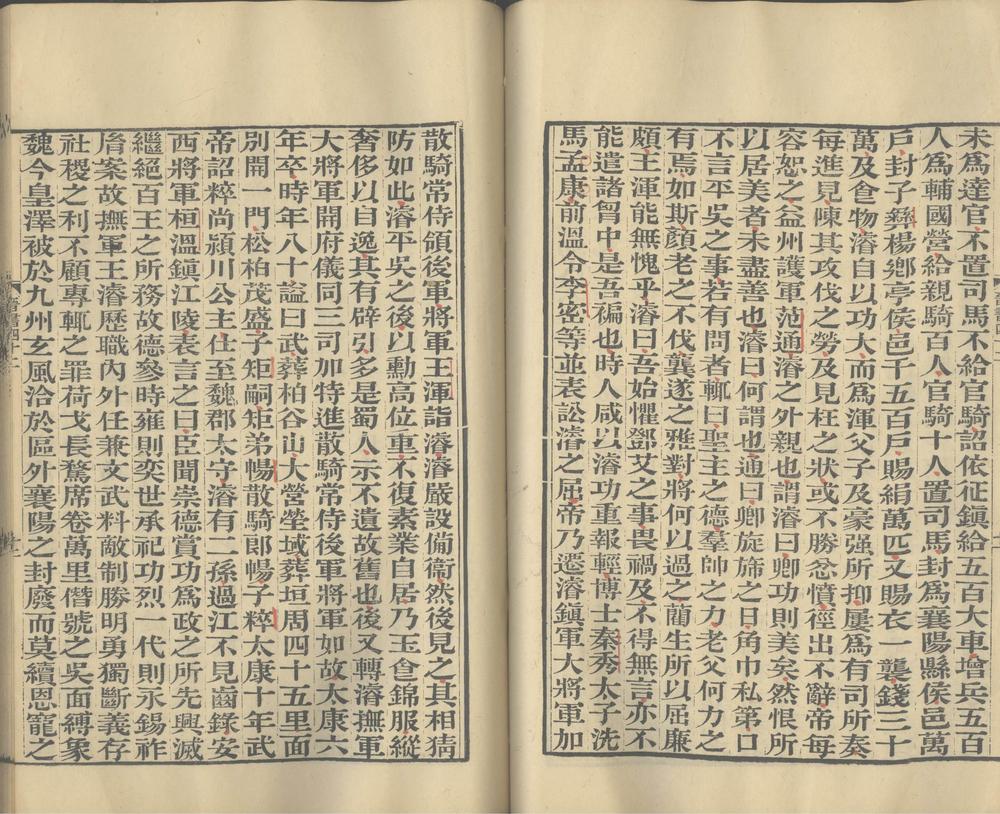 未爲達官不置司馬不給官騎詔依征鎭給五百大車增兵五百
人爲輔國營給親騎百人官騎十人置司馬封爲襄陽縣侯邑萬
戶封子彝楊鄕亭侯邑千五百戶賜絹萬匹又賜衣一襲錢三十
萬及食物濬自以功大而爲渾父子及豪强所抑屢爲有司所奏
每進見陳其攻伐之勞及見枉之狀或不勝忿憤徑出不辭帝每
容恕之益州護軍范通濬之外親也謂濬曰卿功則美矣然恨所
以居美者未盡善也濬曰何謂也通曰卿旋旆之日角巾私第口
不言平吳之事若有問者輒曰聖主之德羣帥之力老父何力之
有焉如斯顏老之不伐龔遂之雅對將何以過之藺生所以屈廉
頗王渾能無愧乎濬曰吾始懼鄧艾之事畏禍及不得無言亦不
能遣諸胷中是吾褊也時人咸以濬功重報輕博士秦秀太子洗
馬孟康前溫令李密等並表訟濬之屈帝乃遷濬鎭軍大將軍加
散騎常侍領後軍將軍王渾詣濬濬嚴設備衞然後見之其相猜
防如此濬平吳之後以勳高位重不復素業自居乃玉食錦服縱
奢侈以自逸其有辟引多是蜀人示不遺故舊也後又轉濬撫軍
大將軍開府儀同三司加特進散騎常侍後軍將軍如故太康六
年卒時年八十謚曰武葬柏谷山大營塋域葬垣周四十五里面
別開一門松柏茂盛子矩嗣矩弟暢散騎郎暢子粹太康十年武
帝詔粹尚潁川公主仕至魏郡太守濬有二孫過江不見齒錄安
西將軍桓溫鎭江陵表言之曰臣聞崇德賞功爲政之所先興滅
繼絕百王之所務故德參時雍則奕世承祀功烈一代則永錫祚
胤案故撫軍王濬歷職內外任兼文武料敵制勝明勇獨斷義存
社稷之利不顧專輒之罪荷戈長騖席卷萬里僭號之吳面縛象
魏今皇澤被於九州玄風洽於區外襄陽之封廢而莫續恩寵之